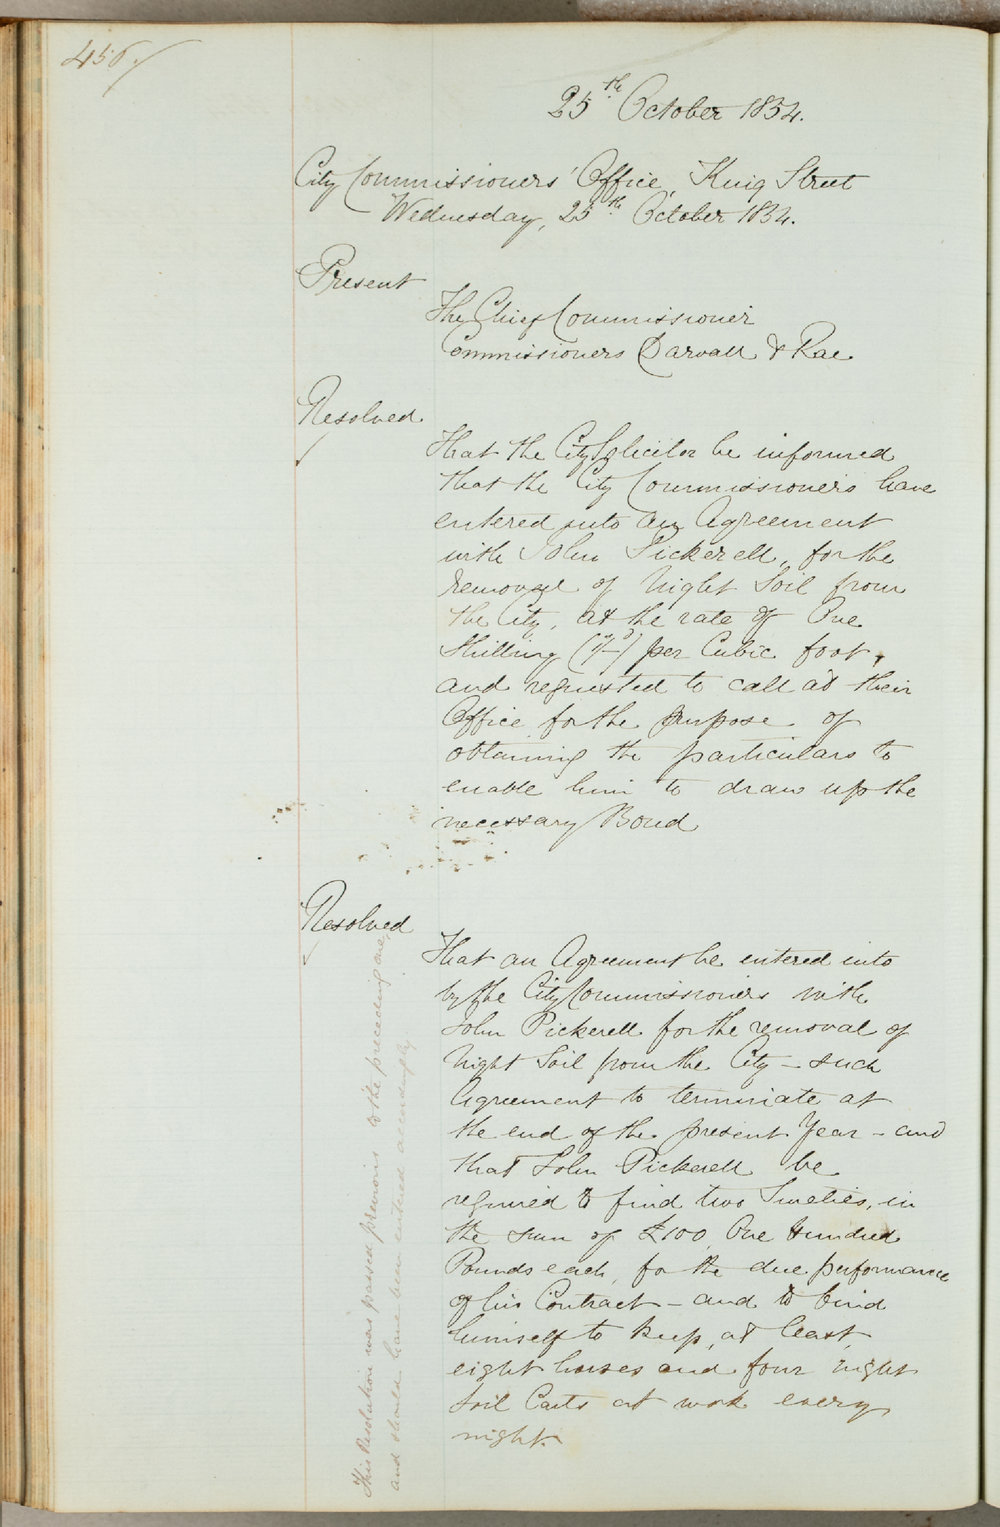 456.
25th October 1854.
City Commissioners' Office, King Street
Wednesday, 25th October 1854.
Present
The Chief Commissioner
Commissioners Darvall & Rae
Resolved
That the City Solicitor be informed
that the City Commissioners have
entered into an Agreement
with John Pickerell, for the
removal of Night Soil from
the City, at the rate of One
Shilling (1/-) per Cubic foot,
and requested to call at their
Office for the purpose of
obtaining the particulars to
enable him to draw up the
necessary Bond
Resolved
That an Agreement be entered into
by the City Commissioners with
John Pickerell for the removal of
Night Soil from the City - such
Agreement to terminate at
the end of the present Year - and
that John Pickerell be
required to find two Sureties, in
the sum of £100 One Hundred
Pounds each, for the due performance
of his Contract - and to bind
himself to keep, at least,
eight horses and four night
Soil Carts at work every
night.
This Resolution was passed previous to the preceding one,
and should have been entered accordingly